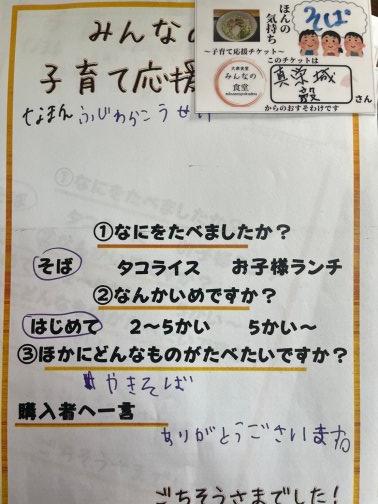 みんなの
子育て応援
ほんの
気持ち
そば
～子育て応援チケット～
このチケットは
大衆食堂
みんなの
食堂
真栄城
毅
さん
からのおすそわけです
なまえ ふじわらこうせい
①なにをたべましたか？
そば タコライス お子様ランチ
②なんかいめですか？
はじめて 2～5かい 5かい～
③ほかにどんなものがたべたいですか？
やきそば
購入者へ一言
ありがとうございます
ごちそうさまでした！